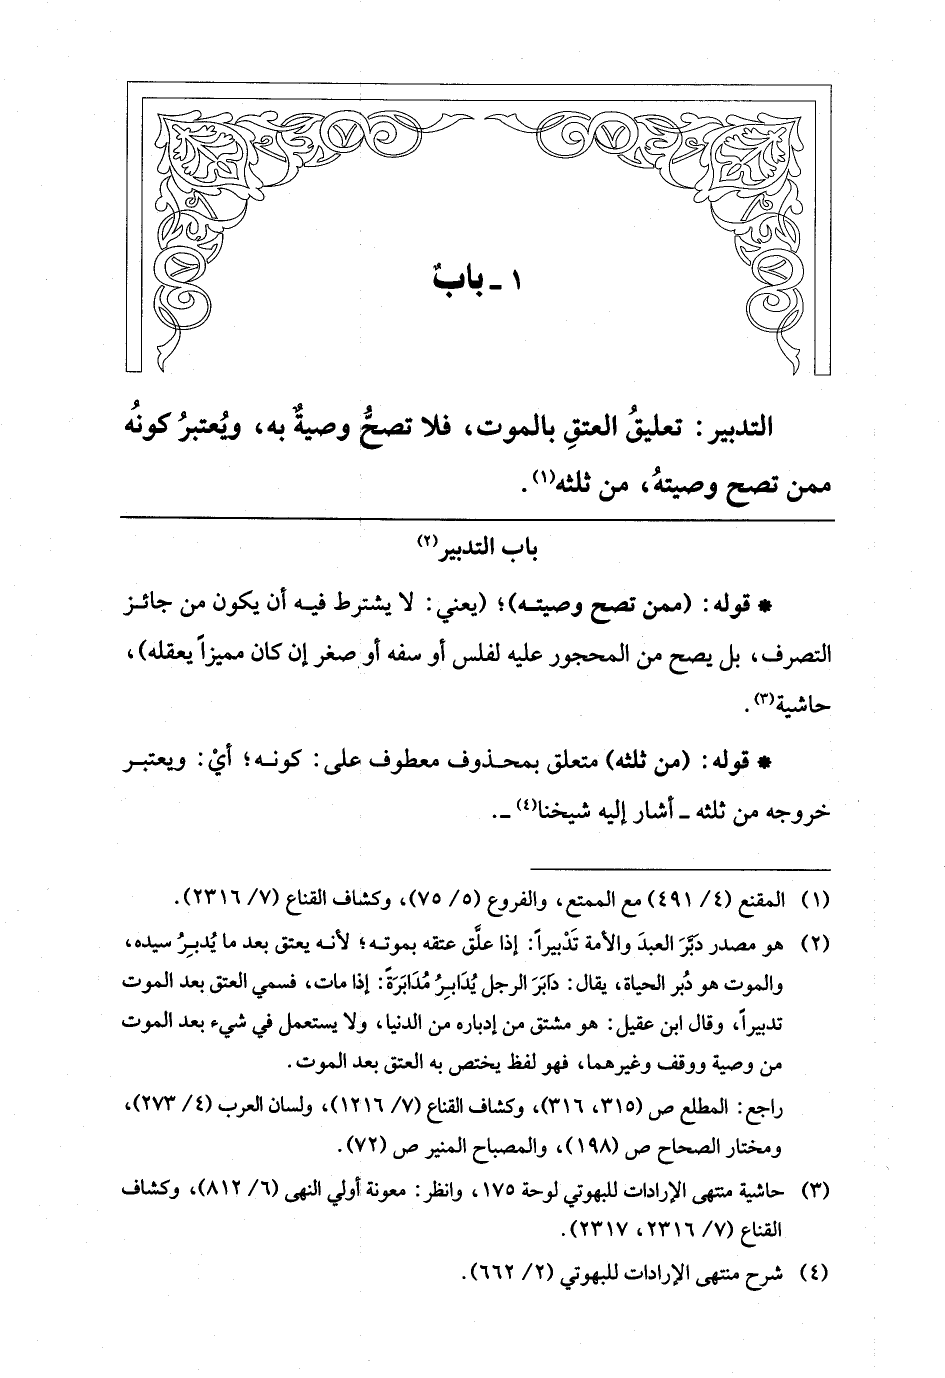 ١ - بابٌ
التدبير: تعليقُ العتقِ بالموت، فلا تصحُّ وصيةٌ به، ويُعتبرُ كونُه
ممن تصح وصيتهُ، من ثلثه(١).
باب التدبير(٢)
* قوله: (ممن تصح وصيته)؛ (يعني: لا يشترط فيه أن يكون من جائز
التصرف، بل يصح من المحجور عليه لفلس أو سفه أو صغر إن كان مميزاً يعقله)،
حاشية(٣).
* قوله: (من ثلثه) متعلق بمحذوف معطوف على: كونه؛ أيْ: ويعتبر
خروجه من ثلثه - أشار إليه شيخنا(٤) -.
(١) المقنع (٤/ ٤٩١) مع الممتع، والفروع (٥/ ٧٥)، وكشاف القناع (٧/ ٢٣١٦).
(٢) هو مصدر دَبَّرَ العبدَ والأمة تَدْبيراً: إذا علَّق عتقه بموته؛ لأنه يعتق بعد ما يُدبرُ سيده،
والموت هو دُبر الحياة، يقال: دَابَرَ الرجل يُدَابِرُ مُدَابَرَةً: إذا مات، فسمي العتق بعد الموت
تدبيراً، وقال ابن عقيل: هو مشتق من إدباره من الدنيا، ولا يستعمل في شيء بعد الموت
من وصية ووقف وغيرهما، فهو لفظ يختص به العتق بعد الموت.
راجع: المطلع ص (٣١٥، ٣١٦)، وكشاف القناع (٧/ ١٢١٦)، ولسان العرب (٤/ ٢٧٣)،
ومختار الصحاح ص (١٩٨)، والمصباح المنير ص (٧٢).
(٣) حاشية منتهى الإرادات للبهوتي لوحة ١٧٥، وانظر: معونة أولي النهى (٦/ ٨١٢)، وكشاف
القناع (٧/ ٢٣١٦، ٢٣١٧).
(٤) شرح منتهى الإرادات للبهوتي (٢/ ٦٦٢).